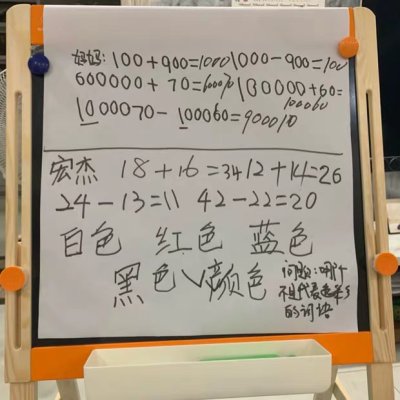 妈妈: 100+900=1000 1000-900=100
600000+70=600070 130000+60=
100060
1000070-100060=900010
宏杰 18+16=34 12+14=26
24-13=11 42-22=20
白色 红色 蓝色
黑色 ✓颜色 问题:哪个
不是代表
的词语